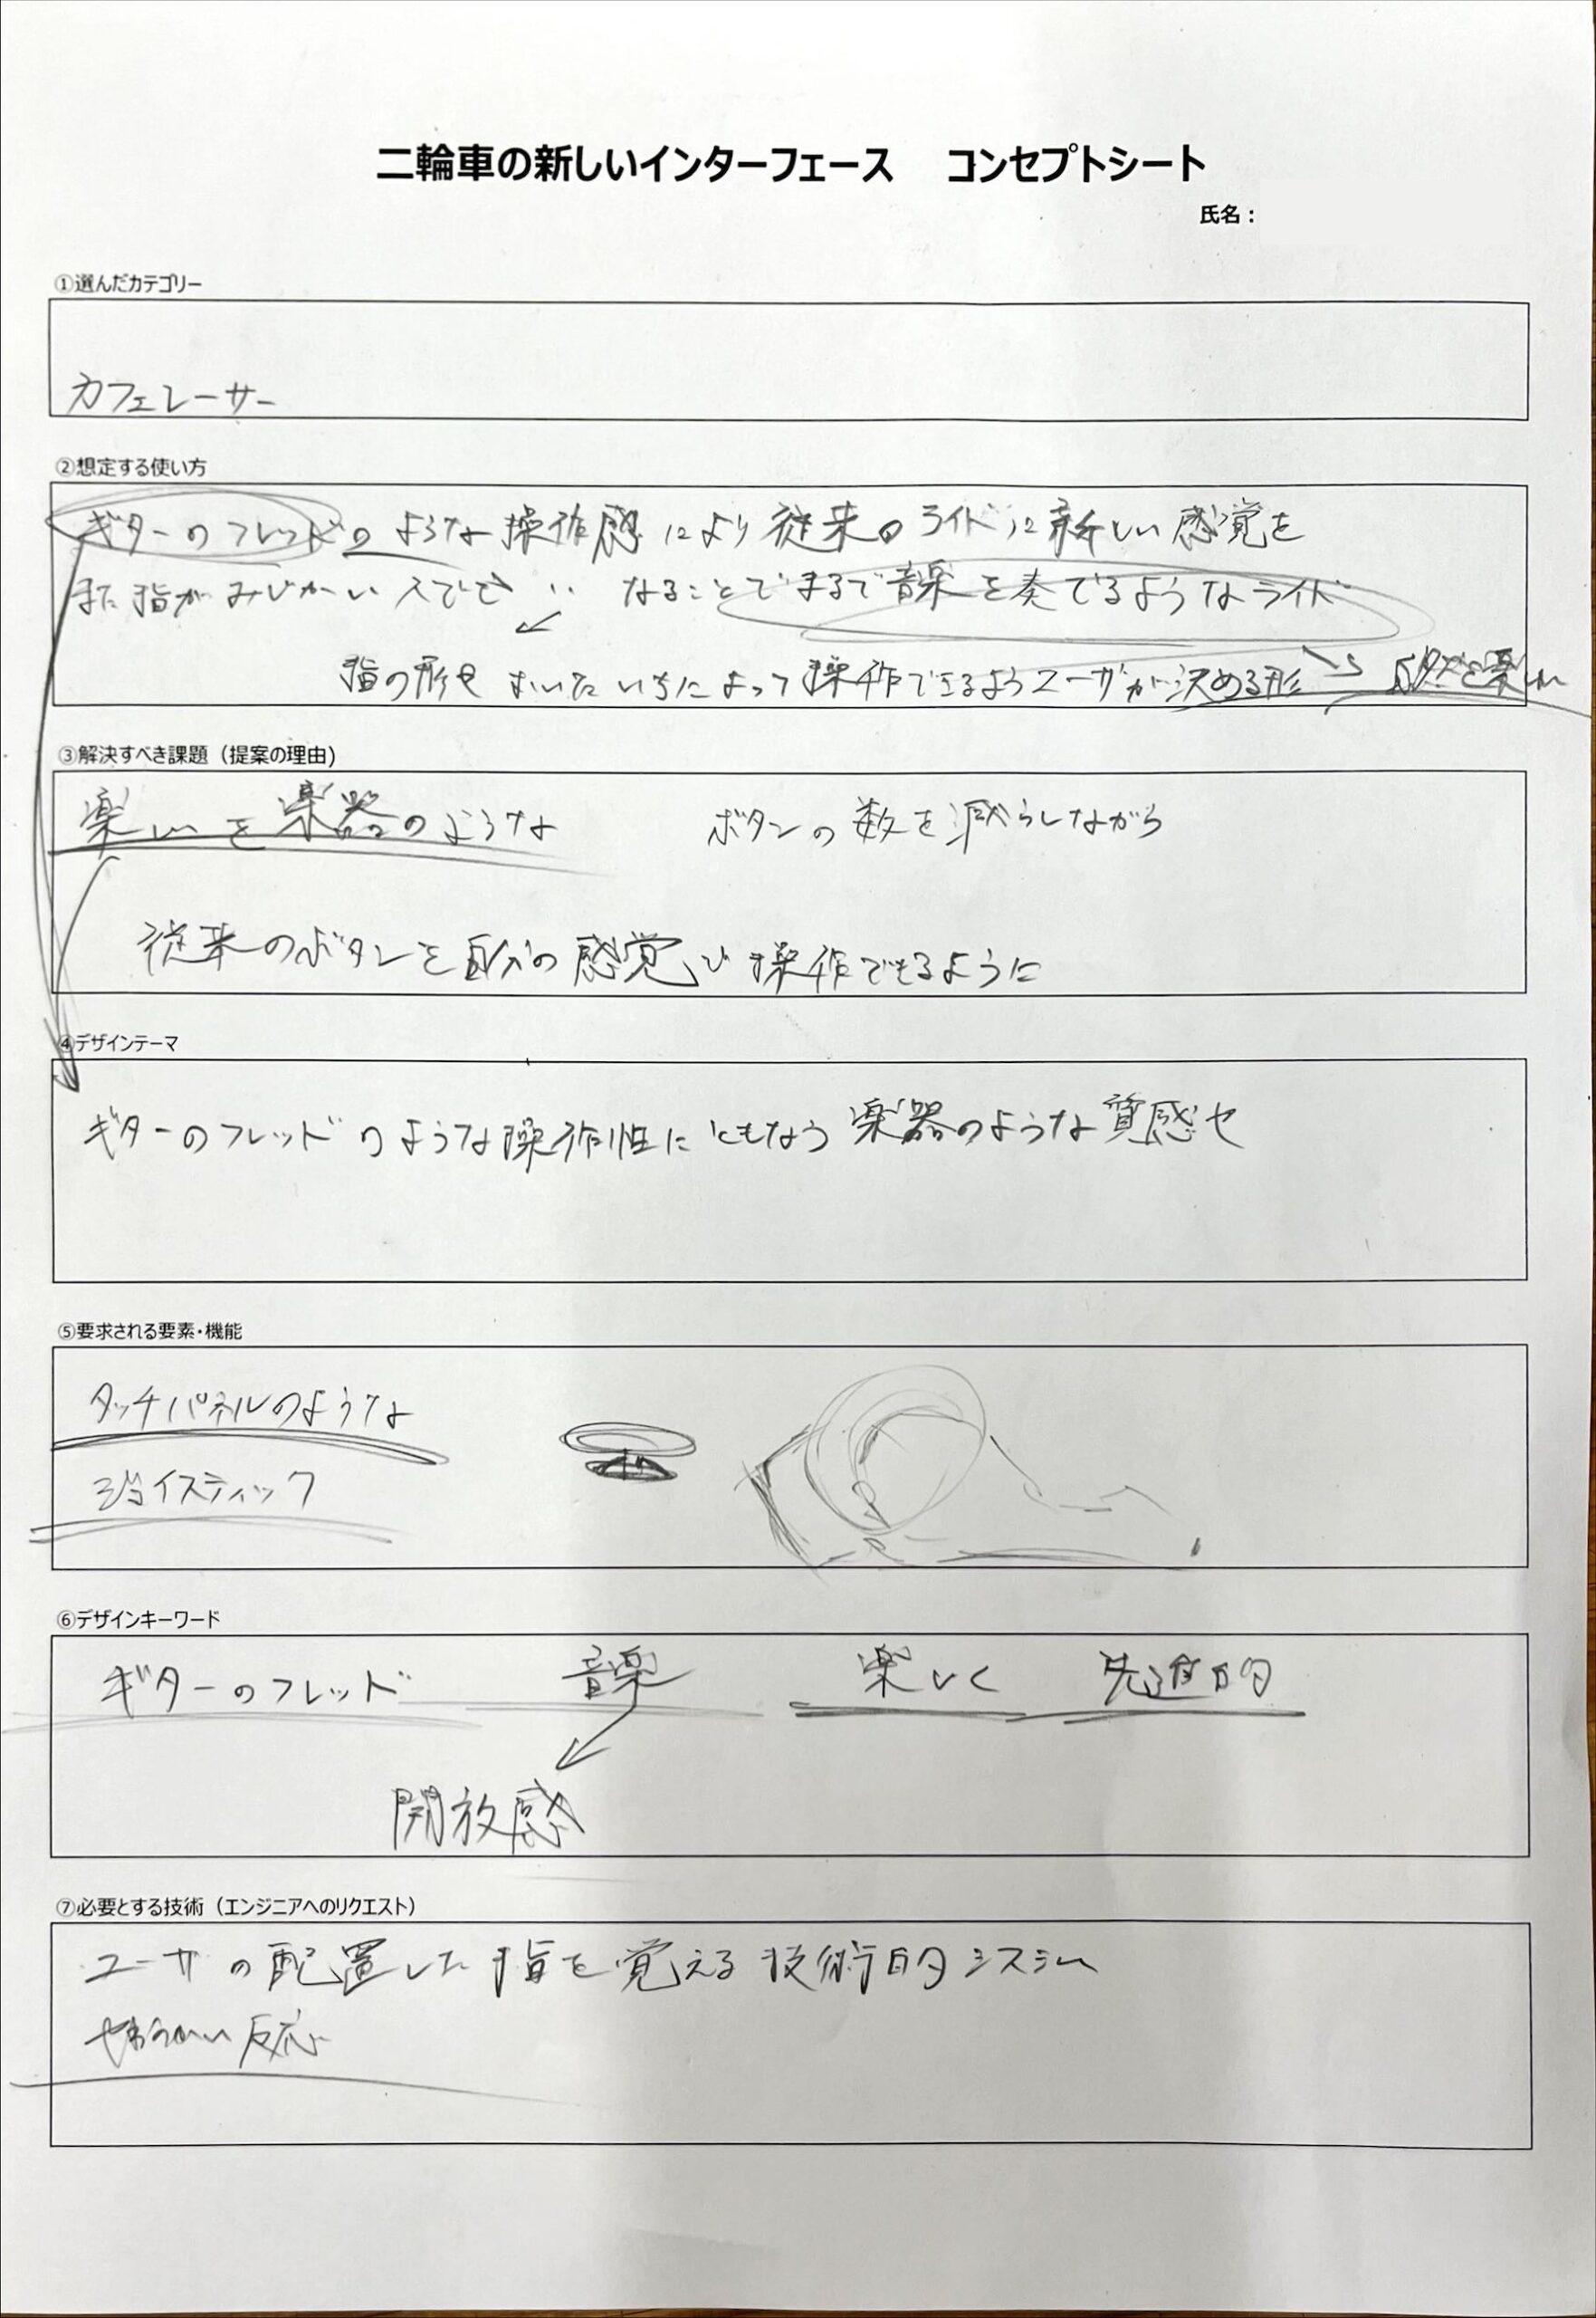 二輪車の新しいインターフェース コンセプトシート
氏名：
①選んだカテゴリー
カフェレーサー
②想定する使い方
ギターのフレッドのような操作感により従来のライドに新しい感覚を
また指がみじかい人でも なることでまるで音楽を奏でるようなライド
指の形や おいたいちによって操作できるようユーザが決める形
③解決すべき課題（提案の理由）
楽しいを楽器のような ボタンの数を減らしながら
従来のボタンを自分の感覚で操作できるように
④デザインテーマ
ギターのフレッドのような操作性にともなう楽器のような質感や
⑤要求される要素・機能
タッチパネルのような
ジョイスティック
⑥デザインキーワード
ギターのフレッド 音楽 楽しく 先進的
開放感
⑦必要とする技術（エンジニアへのリクエスト）
ユーザの配置した指を覚える技術的システム
やわらかい反応